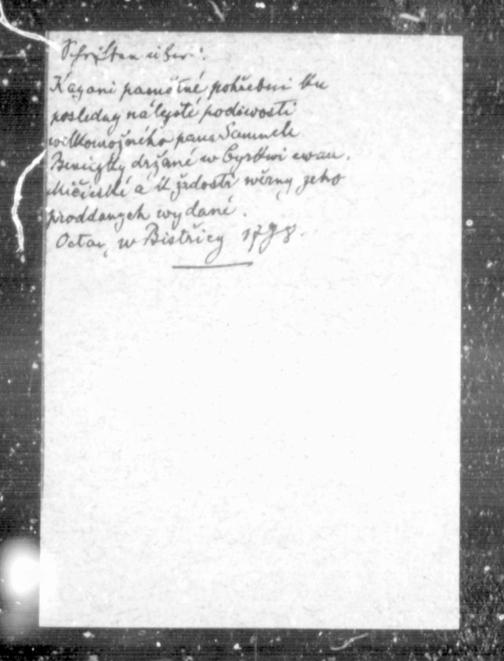 Schriften über:
Kázani pamětné pohřebni ku
posledny náležité podiwosti
wilkomožného pana Samuele
Beniczky držané w Cyrkwi ewan.
Mičinské a k žádosti wěrny jeho
proddanych wydané.
Octav, w Bistřicy 1798.